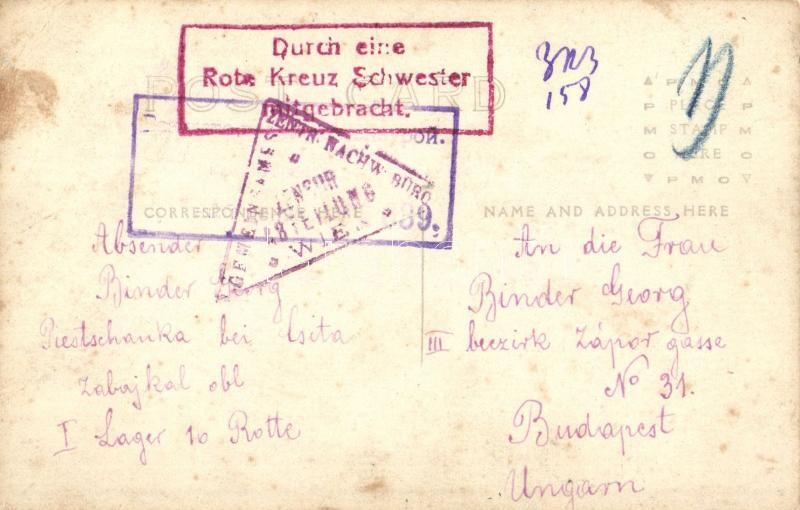 Durch eine
Rote Kreuz Schwester
mitgebracht.
POST CARD
158
PLACE
STAMP
HERE
ZENTR. NACHW. BÜRO
GEMEINSAMES
ZENSUR
ABTEILUNG
WIEN
39.
CORRESPONDENCE HERE
NAME AND ADDRESS HERE
Absender
Binder Georg
Piestschanka bei Csita
Zabajkal obl
I Lager 10 Rotte
An die Frau
Binder Georg
III beezirk Zápor gasse
No 31.
Budapest
Ungarn